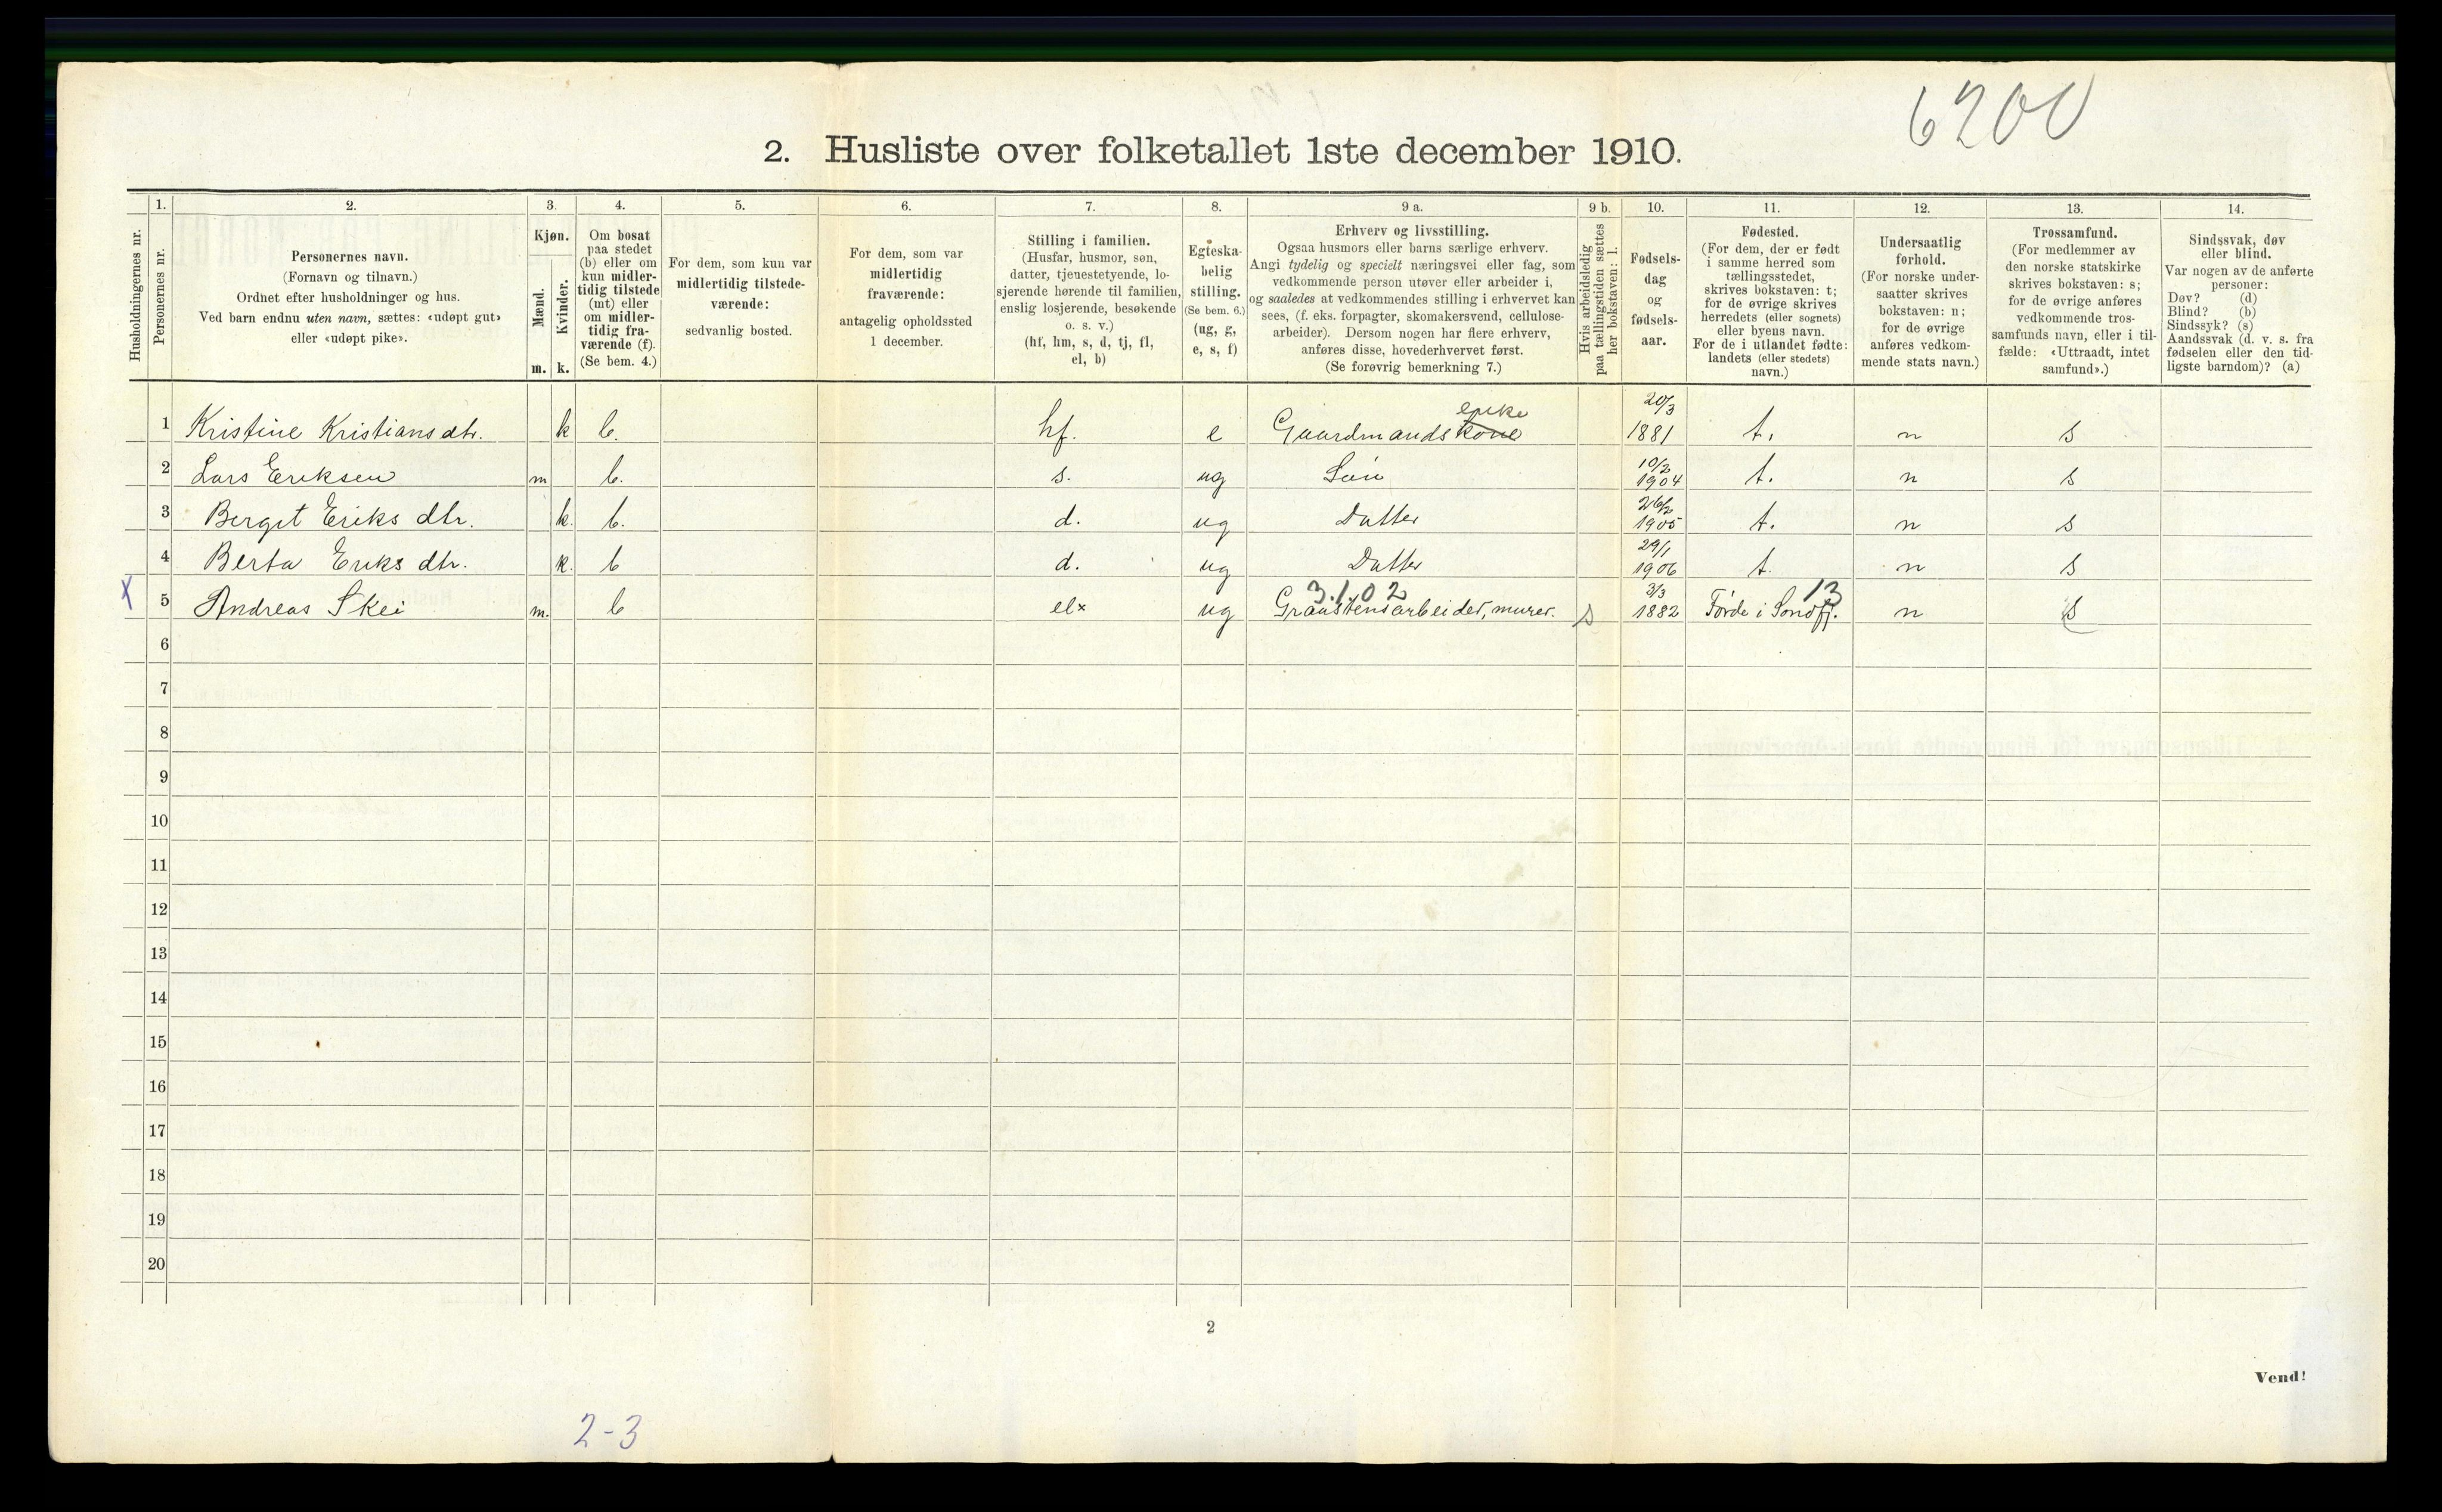 6200
2. Husliste over folketallet 1ste december 1910.
Husholdningernes nr.
1.
Personernes nr.
2.
Personernes navn.
(Fornavn og tilnavn.)
Ordnet efter husholdninger og hus.
Ved barn endnu uten navn, sættes: «udøpt gut»
eller «udøpt pike».
3.
Kjøn.
Mænd.
Kvinder.
m. k.
4.
Om bosat
paa stedet
(b) eller om
kun midler-
tidig tilstede
(mt) eller
om midler-
tidig fra-
værende (f).
(Se bem. 4.)
5.
For dem, som kun var
midlertidig tilstede-
værende:
sedvanlig bosted.
6.
For dem, som var
midlertidig
fraværende:
antagelig opholdssted
1 december.
7.
Stilling i familien.
(Husfar, husmor, søn,
datter, tjenestetyende, lo-
sjerende hørende til familien,
enslig losjerende, besøkende
o. s. v.)
(hf, hm, s, d, tj, fl,
el, b)
8.
Egteska-
belig
stilling.
(Se bem. 6.)
(ug, g,
e, s, f)
9 a.
Erhverv og livsstilling.
Ogsaa husmors eller barns særlige erhverv.
Angi tydelig og specielt næringsvei eller fag, som
vedkommende person utøver eller arbeider i,
og saaledes at vedkommendes stilling i erhvervet kan
sees, (f. eks. forpagter, skomakersvend, cellulose-
arbeider). Dersom nogen har flere erhverv,
anføres disse, hovederhvervet først.
(Se forøvrig bemerkning 7.)
9 b.
Hvis arbeidsledig
paa tællingstiden sættes
her bokstaven: l.
10.
Fødsels-
dag
og
fødsels-
aar.
11.
Fødested.
(For dem, der er født
i samme herred som
tællingsstedet,
skrives bokstaven: t;
for de øvrige skrives
herredets (eller sognets)
eller byens navn.
For de i utlandet fødte:
landets (eller stedets)
navn.)
12.
Undersaatlig
forhold.
(For norske under-
saatter skrives
bokstaven: n;
for de øvrige
anføres vedkom-
mende stats navn.)
13.
Trossamfund.
(For medlemmer av
den norske statskirke
skrives bokstaven: s;
for de øvrige anføres
vedkommende tros-
samfunds navn, eller i til-
fælde: «Uttraadt, intet
samfund».)
14.
Sindssvak, døv
eller blind.
Var nogen av de anførte
personer:
Døv? (d)
Blind? (b)
Sindssyk? (s)
Aandssvak (d. v. s. fra
fødselen eller den tid-
ligste barndom)? (a)
1 Kristine Kristiansdtr. k b. hf. e Gaardmands kone enke 20/3 1881 t. n s
2 Lars Eriksen m b. s. ug Søn 10/2 1904 t. n s
3 Berget Eriks dtr. k. b. d. ug Datter 26/2 1905 t. n s
4 Berta Eriks dtr. k. b d. ug Datter 29/1 1906 t. n s
X 5 Andreas Skei m. b elx ug Granstensarbeider, murer. 3.1.02 s 3/3 1882 Førde i Sondfj. 13 n s
6
7
8
9
10
11
12
13
14
15
16
17
18
19
20
2
Vend!
2-3